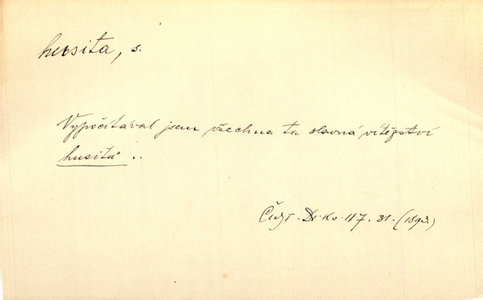 husita, s.
Vypočítával jsem všechna ta slavná vítězství
husitů ..
Di. Ko. 117. 31. (1893)